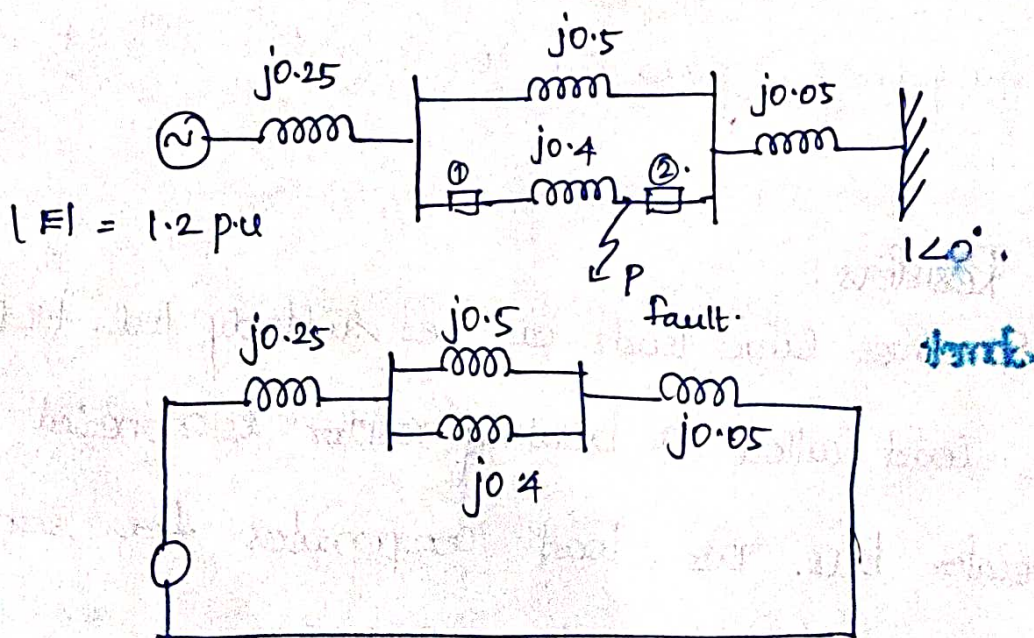 j0.5
j0.25
j0.05
j0.4
① ②.
|E| = 1.2 p.u
1∠0°.
P
fault.
j0.25
j0.5
j0.05
j0.4